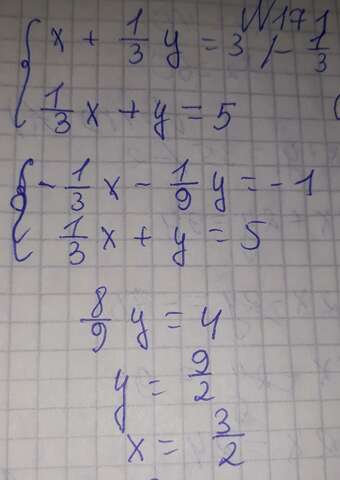 N171
{ x + 1/3 y = 3 / - 1/3
1/3 x + y = 5
{ - 1/3 x - 1/9 y = - 1
1/3 x + y = 5
8/9 y = 4
y = 9/2
x = 3/2